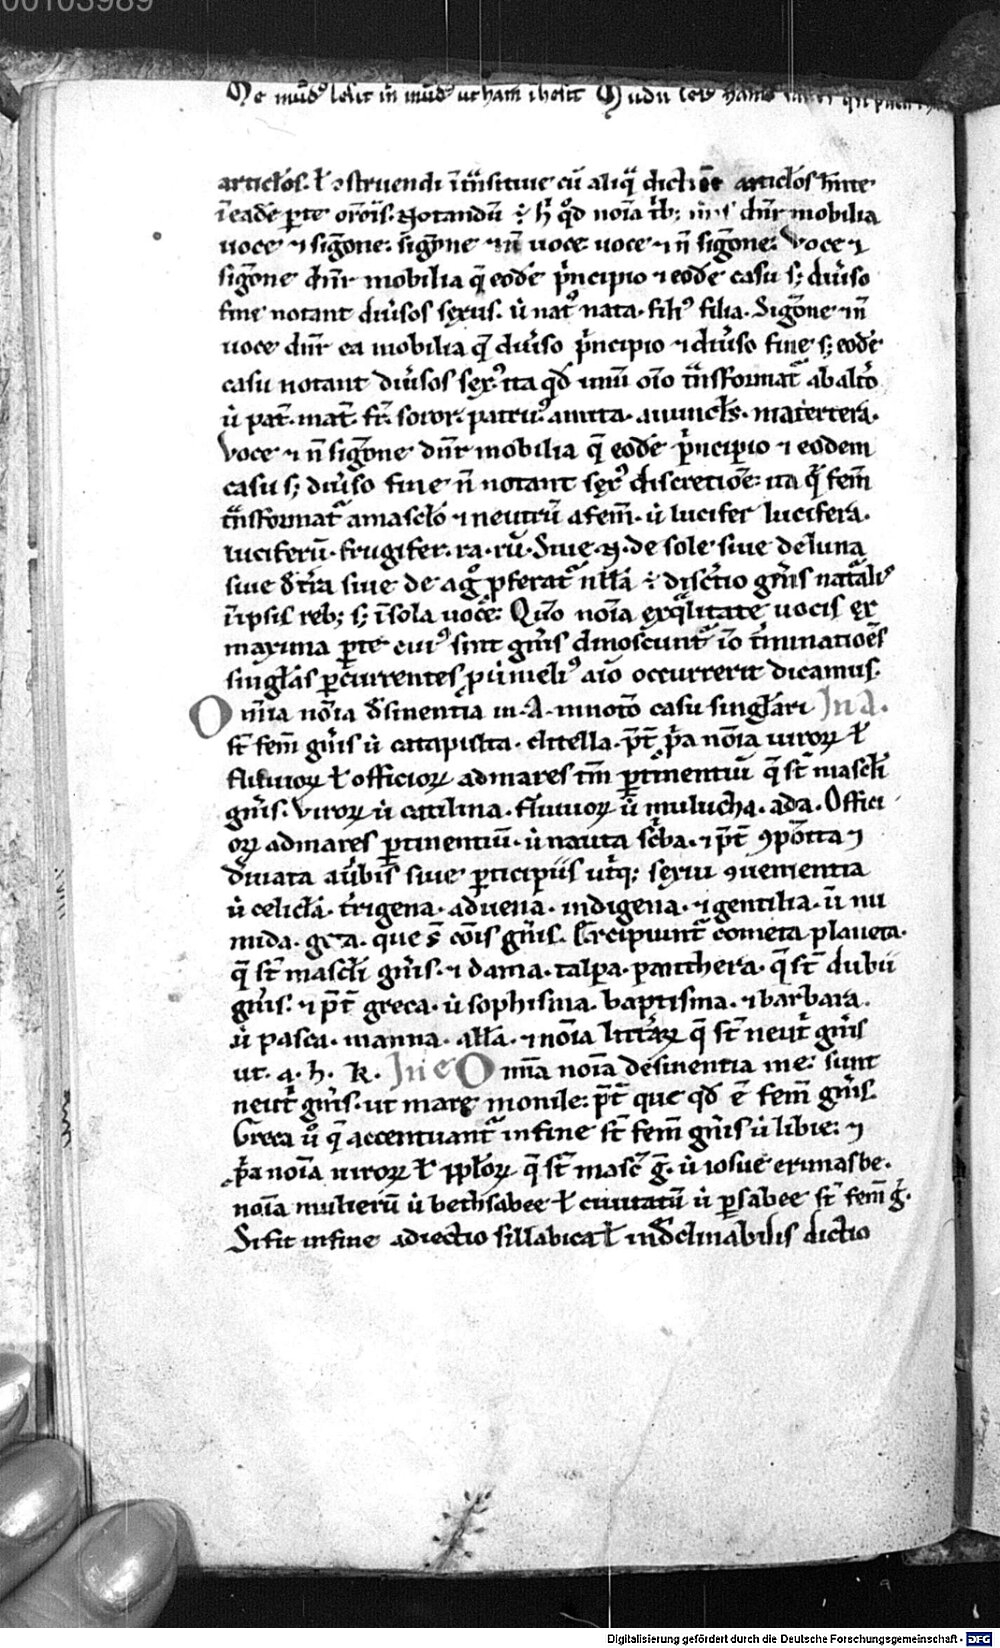 00103989
articłos. ł ↄstruendi ī t̄nsitiue cū aliq̄ dictiōe articłos h̄nte
ī eadē p̱te or̄ois. Notandū ÷ h̄ qͦd noīa tͥb; dn̄r mobilia
uoce ⁊ sigōne: sigōne ⁊ n̄ uoce uoce ⁊ n̄ sigōne: Voce ⁊
sigōne dn̄r mobilia q̄ eodē pͥncipio ⁊ eodē casu s; diu͛so
fine notant diu͛sos sexus. ù natꝰ nata. filiꝰ filia. Sigōne ⁊ n̄
uoce dn̄r ea mobilia q̄ diu͛so pͥncipio ⁊ diu͛so fine s; eodē
casu notant diu͛sos sexꝰ ita qd̄ unū oīo t̄nsformatᷣ ab alt͛o
ù pat̄. mat̄. fr̄. soror. patruꝰ. amita. auuncłs. matertera.
Voce ⁊ n̄ sigōne dn̄r mobilia q̄ eodē pͥncipio ⁊ eodem
casu s; diu͛so fine n̄ notant sexꝰ discretiōe: ita q̄ fem̄
t̄nsformatᷣ a mascłō ⁊ neutrū a fem̄. ù lucifer lucifera.
luciferū. frugifer. ra. rū. Siue .n̄. de sole siue de luna
siue d̄ t͛ra siue de agͦ ꝓferatᷣ nłła ÷ disc͛tio gn̄is natᷓliꝰ
ī ipsis reb; s; ī sola uoce: Qm̄o noīa ex q̄litate uocis ex
maxima p̱te cuiꝰ sint gn̄is dinoscuntᷣ iō t͛minatiōes
singłas p̱currentes ꝓ ut meliꝰ aīo occurrerit dicamus.
Om̄ia noīa d̄sinentia in .A. in noīto casu singłari In A.
st̄ fem̄ gn̄is ù catapista. clitella. p̄t̄ pͥa noīa uiroꝝ ł
fluuioꝝ ł officioꝝ ad mares tm̄ p̱tinentiū q̄ st̄ mascłi
gn̄is. Viroꝝ ù catilina. fluuioꝝ ù mulucha. ada. Offici
oꝝ ad mares p̱tinentiū. ù nauta sc͛ba. ⁊ p̄t̄ ꝯpoīta ⁊
d̄iuata a u͛bis siue p̱ticipiis ut͛q; sexui ꝯuenientia
ù celicła. t͛rigena. aduena. indigena. ⁊ gentilia. ù nu
mida. geta. que s̄ cōis gn̄is. Excipiuntᷣ cometa planeta.
q̄ st̄ mascłi gn̄is. ⁊ dama. talpa. panthera. q̄ st̄ dubii
gn̄is. ⁊ p̄t̄ greca. ù sophisma. baptisma. ⁊ barbara.
ù pasca. manna. ałła. ⁊ noīa litt͛aꝝ q̄ st̄ neut͛ gn̄is
ut. a. h. k. In e Om̄ia noīa desinentia in e: sunt
neut͛ gn̄is. ut mare monile: p̄t̄ que qd̄ ē fem̄ gn̄is.
Greca uͦ q̄ accentuantᷣ in fine st̄ fem̄ gn̄is ù libie: ⁊
pͥa noīa uiroꝝ ł ppłoꝝ q̄ st̄ masc̄ ḡ. ù iosue ermasbe.
noīa mulierū ù bethsabee ł ciuitatū ù p̱sabee st̄ fem̄ ḡ.
Si fit in fine adiectio sillabica ł ind̄clinabilis dictio
Digitalisierung gefördert durch die Deutsche Forschungsgemeinschaft - DFG